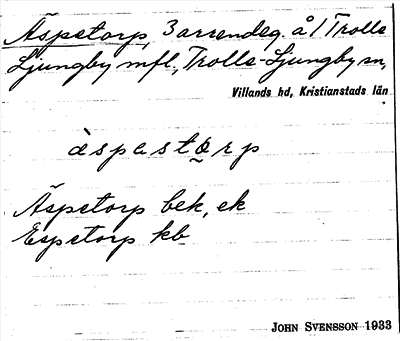 Äspetorp, 3 arrendeg. å 1 Trolle
Ljungby mfl., Trolle-Ljungby sn,
Villands hd, Kristianstads län
èspastòrp
Äspetorp bek, ek
Espetorp kb
JOHN SVENSSON 1933